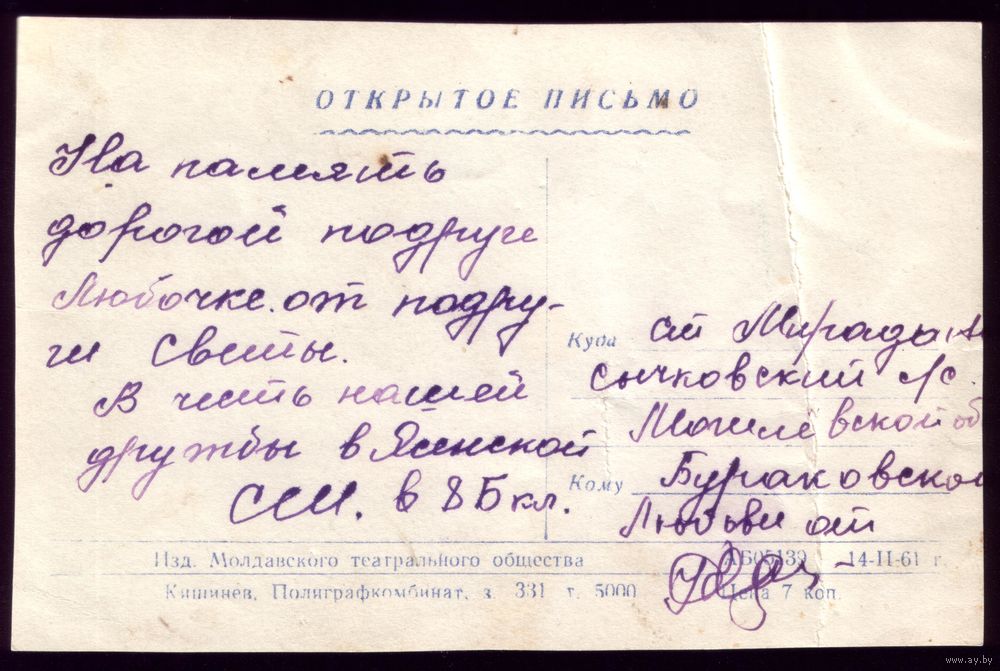 ОТКРЫТОЕ ПИСЬМО
На память
дорогой подруги
Любочке от подру-
ги Светы.
В честь нашей
дружбы в Ясенской
СШ. в 8 Б кл.
Куда ст Мирада,
сычковский с/с.
Могилёвской об
Кому Бураковской
Любови от
Изд. Молдавского театрального общества
АБ05139 14-II-61 г.
Кишинев, Полиграфкомбинат, з. 331 т. 5000
Цена 7 коп.
www.ay.by